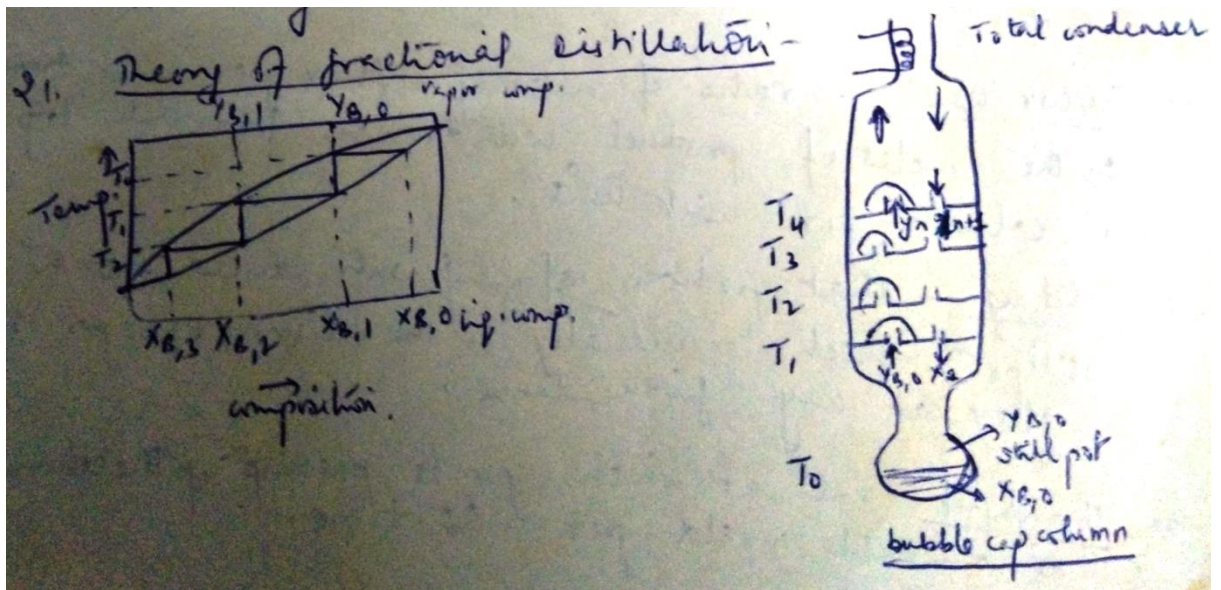 21. Theory of fractional distillation-
vapor comp.
YB,1 YB,0
Temp.
T0
T1
T2
XB,3 XB,2 XB,1 XB,0 liq. comp.
composition.
Total condenser
T4
yn
T3
T2
T1
YB,0
T0
YB,0
still pot
XB,0
bubble cap column